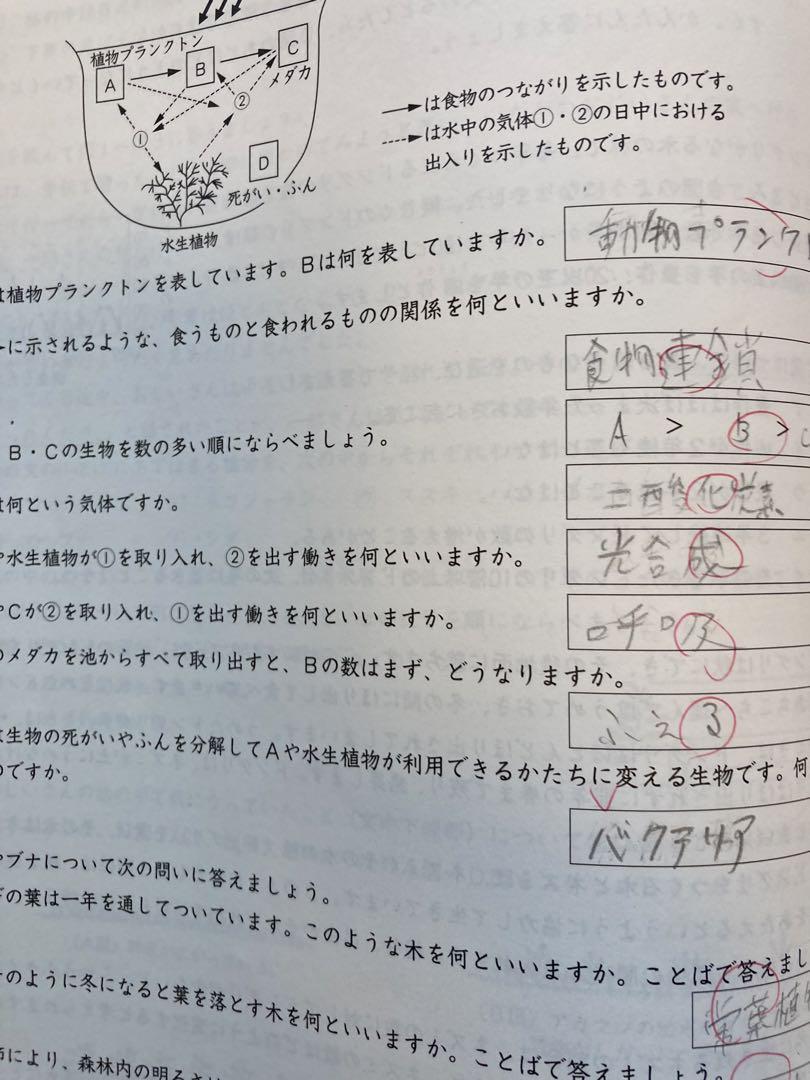 植物プランクトン
A
B
C
メダカ
①
②
D
死がい・ふん
水生植物
→は食物のつながりを示したものです。
⇢は水中の気体①・②の日中における
出入りを示したものです。
は植物プランクトンを表しています。Bは何を表していますか。
動物プランク
に示されるような、食うものと食われるものの関係を何といいますか。
食物連鎖
B・Cの生物を数の多い順にならべましょう。
A > B >
は何という気体ですか。
二酸化炭素
や水生植物が①を取り入れ、②を出す働きを何といいますか。
光合成
Cが②を取り入れ、①を出す働きを何といいますか。
呼吸
のメダカを池からすべて取り出すと、Bの数はまず、どうなりますか。
ふえる
は生物の死がいやふんを分解してAや水生植物が利用できるかたちに変える生物です。何
のですか。
バクテリア
ブナについて次の問いに答えましょう。
の葉は一年を通してついています。このような木を何といいますか。ことばで答えまし
常葉植
のように冬になると葉を落とす木を何といいますか。ことばで答えましょう。
により、森林内の明るさ